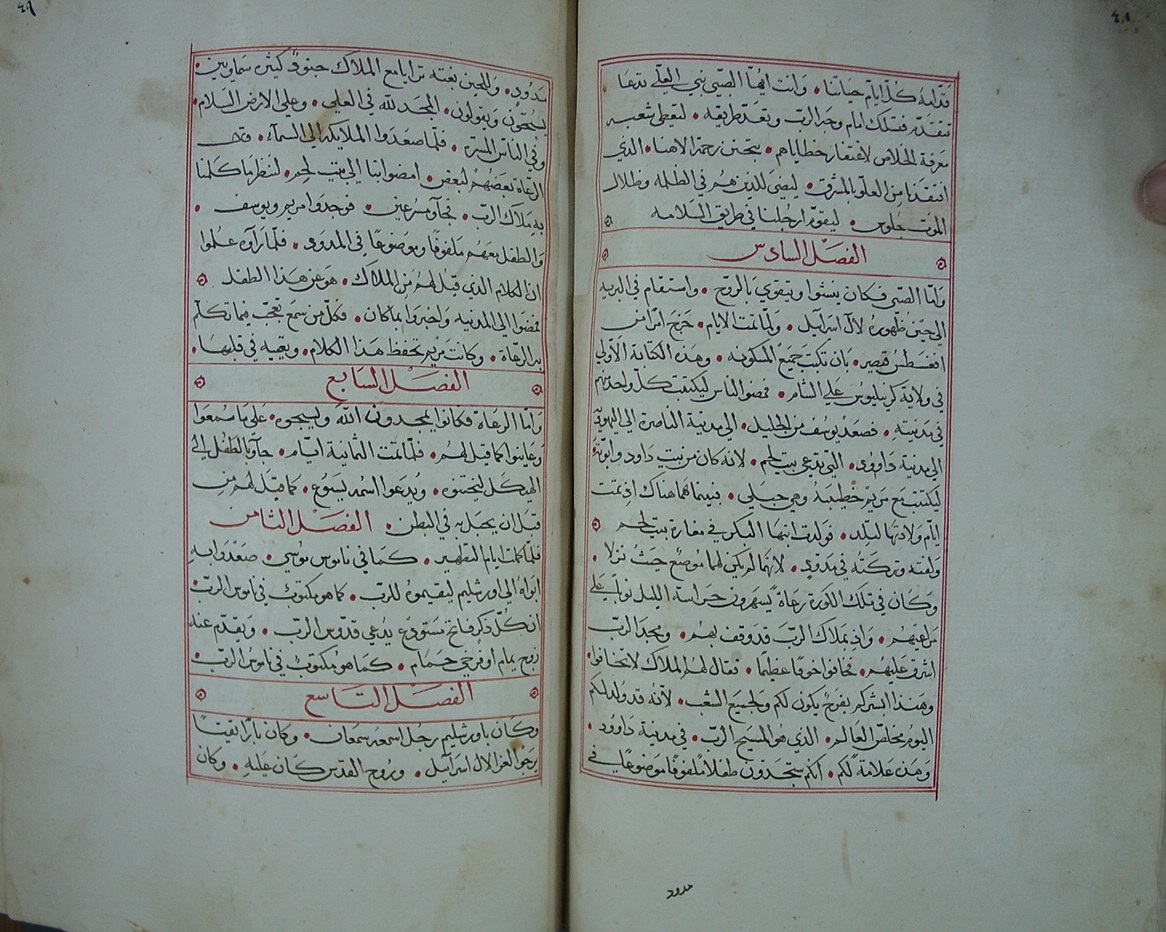 ٤٨
قدامه كل ايام حياتنا • وانت ايها الصبي نبي العلي تدعا •
تنقدم فتسلك امام وجه الرب وتعد طريقه • لتعطي شعبه
معرفة الخلاص لاغتفار خطاياهم • بتحنن رحمة الاهنا • الذي
افتقدنا من العلو بالمشرق • ليضي للذين هم في الظلمه وظلال
الموت جلوس • ليقوم ارجلنا في طريق السلامه
الفصل السادس
واما الصبي فكان ينشوا ويتقوي بالروح • واستقام في البريه
الي حين ظهوره لال اسراييل • ولما تمت الايام • خرج امرا من
اغسطس قيصر • بان تكتب جميع المسكونه • وهذه الكتابة الاولي
في ولاية كرينيليوس علي الشام • فمضوا الناس ليكتتب كل واحد منهم
في مدينته • فصعد يوسف من الجليل • الي مدينة الناصرة الي اليهوديه
الي مدينة داوود • التي تدعي بيت لحم • لانه كان من بيت داود وابوته
ليكتتب مع مريم خطيبته وهي حبلي • فبينما هما هناك اذ تمت
ايام ولادتها لتلد • فولدت ابنها البكر في مغارة بيت لحم
ولفته وتركته في مدود • لانهما لم يكن لهما موضع حيث نزلا •
وكان في تلك الكورة رعاة يسهرون حراسة الليل نوبا علي
مراعيهم • واذي بملاك الرب قد وقف بهم • ومجد الرب
اشرق عليهم • فخافوا خوفا عظيما • فقال لهم الملاك لا تخافوا •
وهنذا ابشركم بفرح يكون لكم ولجميع الشعب • لانه قد ولد لكم
اليوم مخلص العالم • الذي هو المسيح الرب • في مدينة داوود •
وهذه علامة لكم • انكم ستجدون طفلا ملفوفا موضوعا في
مدود
٤٩
مدود • وللحين بغته ترايا مع الملاك جنود كثيره سماويين •
يسبحون ويقولون • المجد لله في العلي • وعلي الارض السلام •
وفي الناس المسره • فلما صعدوا الملايكه الي السماء • قال
الرعاة بعضهم لبعض • امضوا بنا الي بيت لحم • لننظر ما كلمنا
به ملاك الرب • فجاو مسرعين • فوجدوا مريم ويوسف •
والطفل معهم ملفوفا وموضوعا في المدود • فلما راوه علموا
ان الكلام الذي قيل لهم من الملاك • هو عن هذا الطفل
فمضوا الي المدينه واخبروا بما كان • فكل من سمع تعجب فيما تكلم
به الرعاة • وكانت مريم تحفظ هذا الكلام • وتقيسه في قلبها •
الفصل السابع
واما الرعاة فكانوا يمجدون الله ويسبحوه • علي ما سمعوا
وعاينوا كما قيل لهم • فلما تمت الثمانية ايام • جاو بالطفل الي
الهيكل ليختنوه • ويدعوا اسمه يسوع • كما قيل لهم من
قبل ان يحبل به في البطن • الفصل الثامن
فلما كملت ايام التطهير • كما في ناموس موسي • صعدوا به
ابواه الي اورشليم ليقيموه للرب • كما هو مكتوب في ناموس الرب •
ان كل ذكر فاتح مستودع يدعي قدوس الرب • ويقدم عنه
زوج يمام او فرخي حمام • كما هو مكتوب في ناموس الرب •
الفصل التاسع
وكان باورشليم رجل اسمه سمعان • وكان بارا تقيا
يرجوا العزا لال اسراييل • وروح القدس كان عليه • وكان